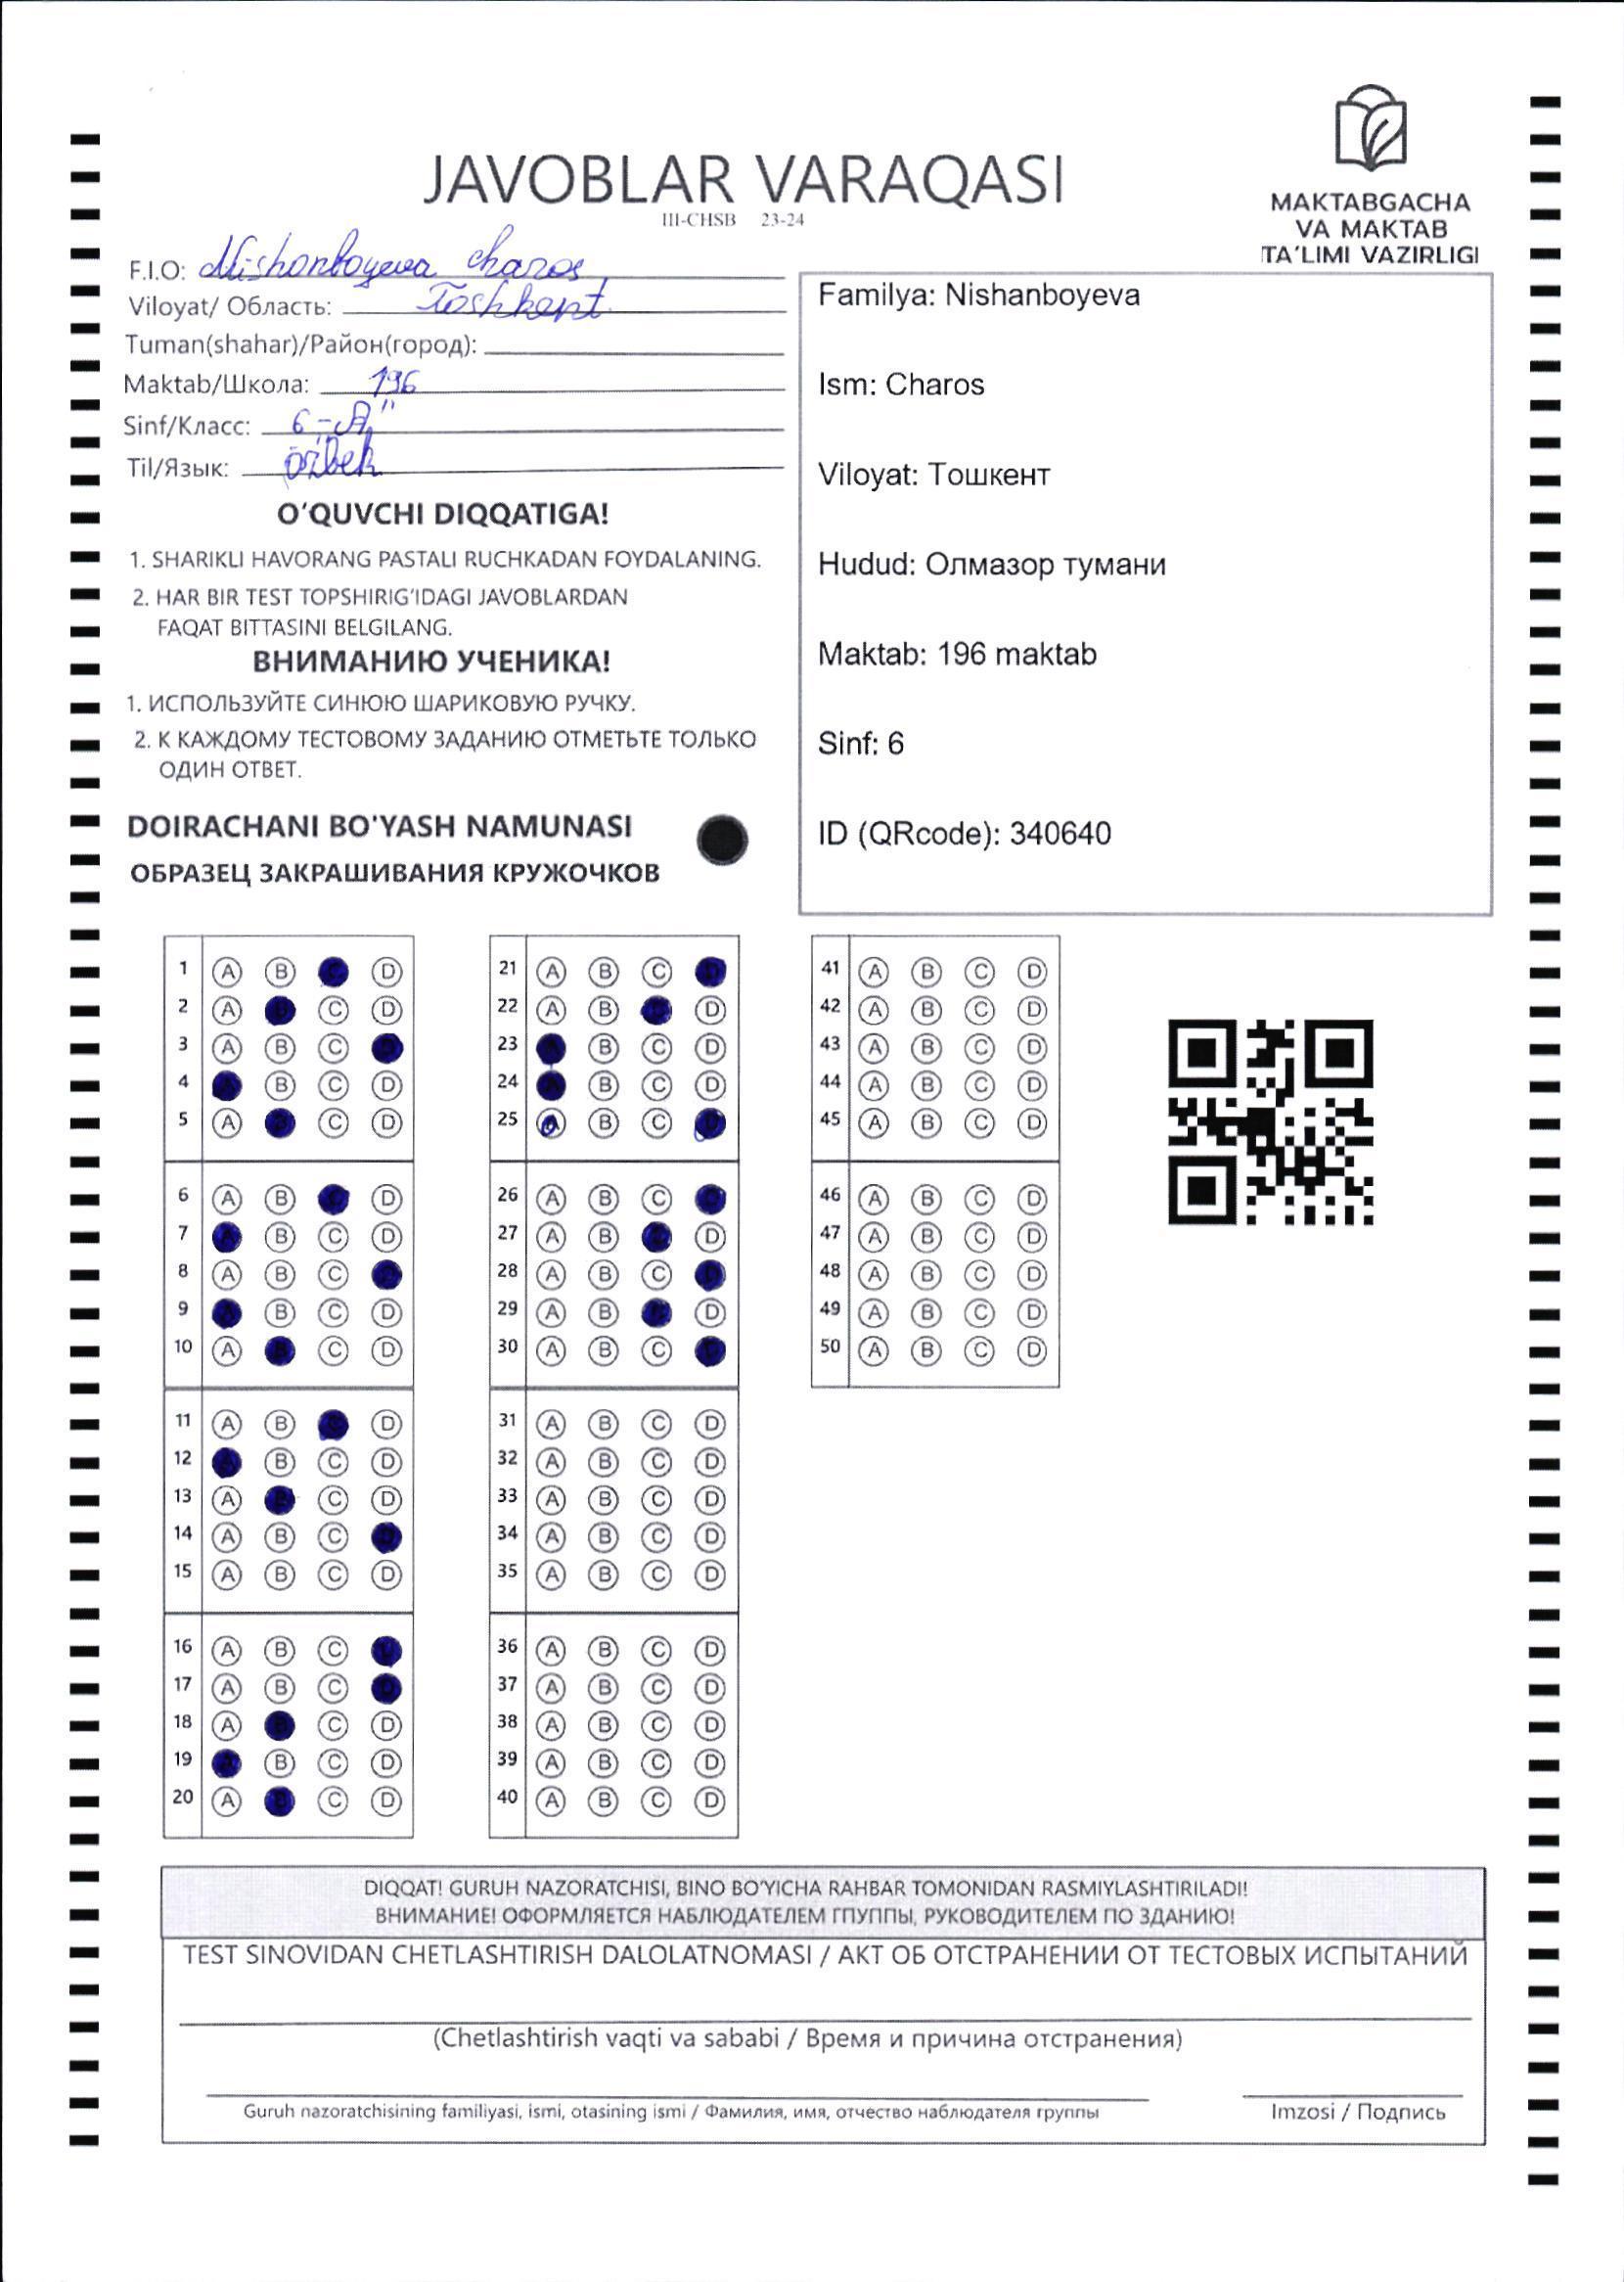 JAVOBLAR VARAQASI
III-CHSB 23-24
MAKTABGACHA
VA MAKTAB
TA'LIMI VAZIRLIGI
F.I.O: Nishonboyeva Charos
Viloyat/ Область: Toshkent
Tuman(shahar)/Район(город):
Maktab/Школа: 196
Sinf/Класс: 6-„A"
Til/Язык: özbek
O'QUVCHI DIQQATIGA!
1. SHARIKLI HAVORANG PASTALI RUCHKADAN FOYDALANING.
2. HAR BIR TEST TOPSHIRIG'IDAGI JAVOBLARDAN
FAQAT BITTASINI BELGILANG.
ВНИМАНИЮ УЧЕНИКА!
1. ИСПОЛЬЗУЙТЕ СИНЮЮ ШАРИКОВУЮ РУЧКУ.
2. К КАЖДОМУ ТЕСТОВОМУ ЗАДАНИЮ ОТМЕТЬТЕ ТОЛЬКО
ОДИН ОТВЕТ.
DOIRACHANI BO'YASH NAMUNASI
ОБРАЗЕЦ ЗАКРАШИВАНИЯ КРУЖОЧКОВ
Familya: Nishanboyeva
Ism: Charos
Viloyat: Тошкент
Hudud: Олмазор тумани
Maktab: 196 maktab
Sinf: 6
ID (QRcode): 340640
1 A B C D
2 A B C D
3 A B C D
4 A B C D
5 A B C D
6 A B C D
7 A B C D
8 A B C D
9 A B C D
10 A B C D
11 A B C D
12 A B C D
13 A B C D
14 A B C D
15 A B C D
16 A B C D
17 A B C D
18 A B C D
19 A B C D
20 A B C D
21 A B C D
22 A B C D
23 A B C D
24 A B C D
25 A B C D
26 A B C D
27 A B C D
28 A B C D
29 A B C D
30 A B C D
31 A B C D
32 A B C D
33 A B C D
34 A B C D
35 A B C D
36 A B C D
37 A B C D
38 A B C D
39 A B C D
40 A B C D
41 A B C D
42 A B C D
43 A B C D
44 A B C D
45 A B C D
46 A B C D
47 A B C D
48 A B C D
49 A B C D
50 A B C D
DIQQAT! GURUH NAZORATCHISI, BINO BO'YICHA RAHBAR TOMONIDAN RASMIYLASHTIRILADI!
ВНИМАНИЕ! ОФОРМЛЯЕТСЯ НАБЛЮДАТЕЛЕМ ГПУППЫ, РУКОВОДИТЕЛЕМ ПО ЗДАНИЮ!
TEST SINOVIDAN CHETLASHTIRISH DALOLATNOMASI / АКТ ОБ ОТСТРАНЕНИИ ОТ ТЕСТОВЫХ ИСПЫТАНИЙ
(Chetlashtirish vaqti va sababi / Время и причина отстранения)
Guruh nazoratchisining familiyasi, ismi, otasining ismi / Фамилия, имя, отчество наблюдателя группы
Imzosi / Подпись